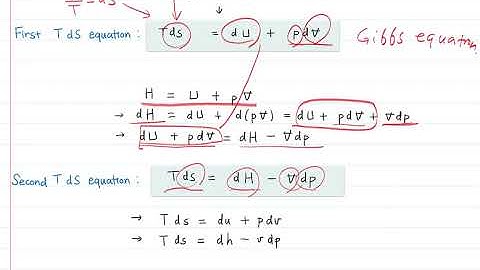 T = ds
First T dS equation : T dS = dU + p dV Gibbs equation
H = U + pV
→ dH = dU + d(pV) = dU + pdV + Vdp
→ dU + pdV = dH − Vdp
Second T dS equation : T dS = dH − Vdp
→ T ds = du + pdv
→ T ds = dh − vdp